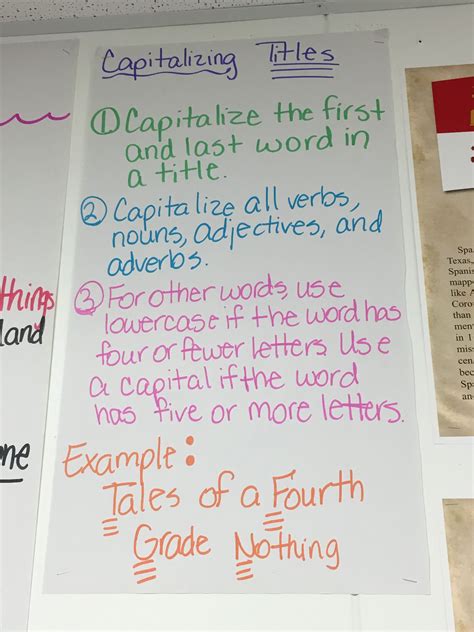 Capitalizing Titles
① Capitalize the first
and last word in
a title.
② Capitalize all verbs,
nouns, adjectives, and
adverbs.
③ For other words, use
lowercase if the word has
four or fewer letters. Use
a capital if the word
has five or more letters.
Example:
Tales of a Fourth
Grade Nothing
things
land
ne
Spa
Texas,
Spanis
mapp
like A
Coro
that
in 1
miss
cen
bec
Spa
and